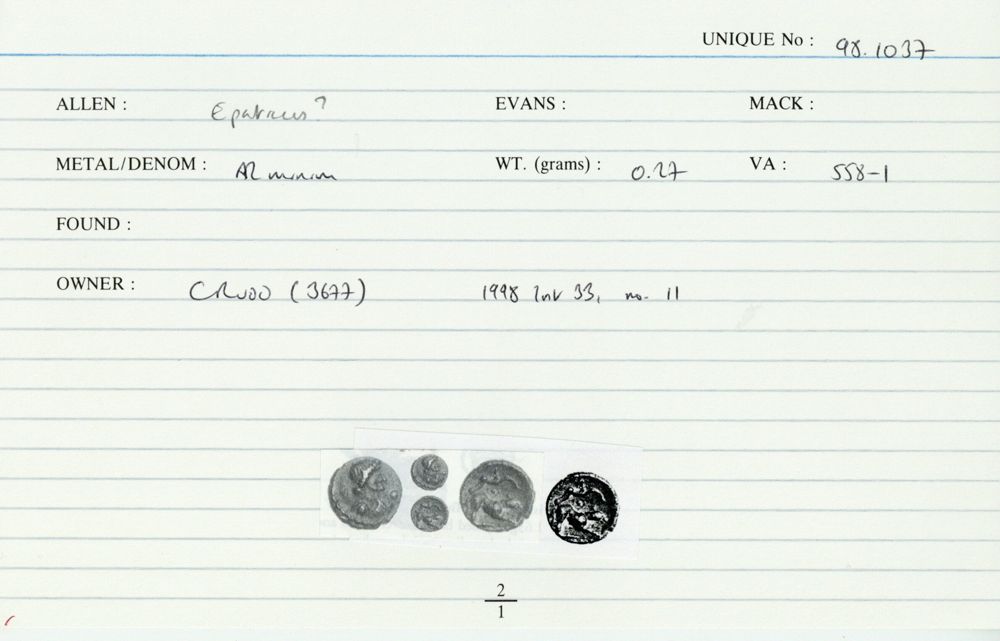 UNIQUE No : 98.1037
ALLEN : Epaticcus? EVANS : MACK :
METAL/DENOM : AR minim WT. (grams) : 0.27 VA : 558-1
FOUND :
OWNER : CR (3677) 1998 Inv 33, no. 11
2
1